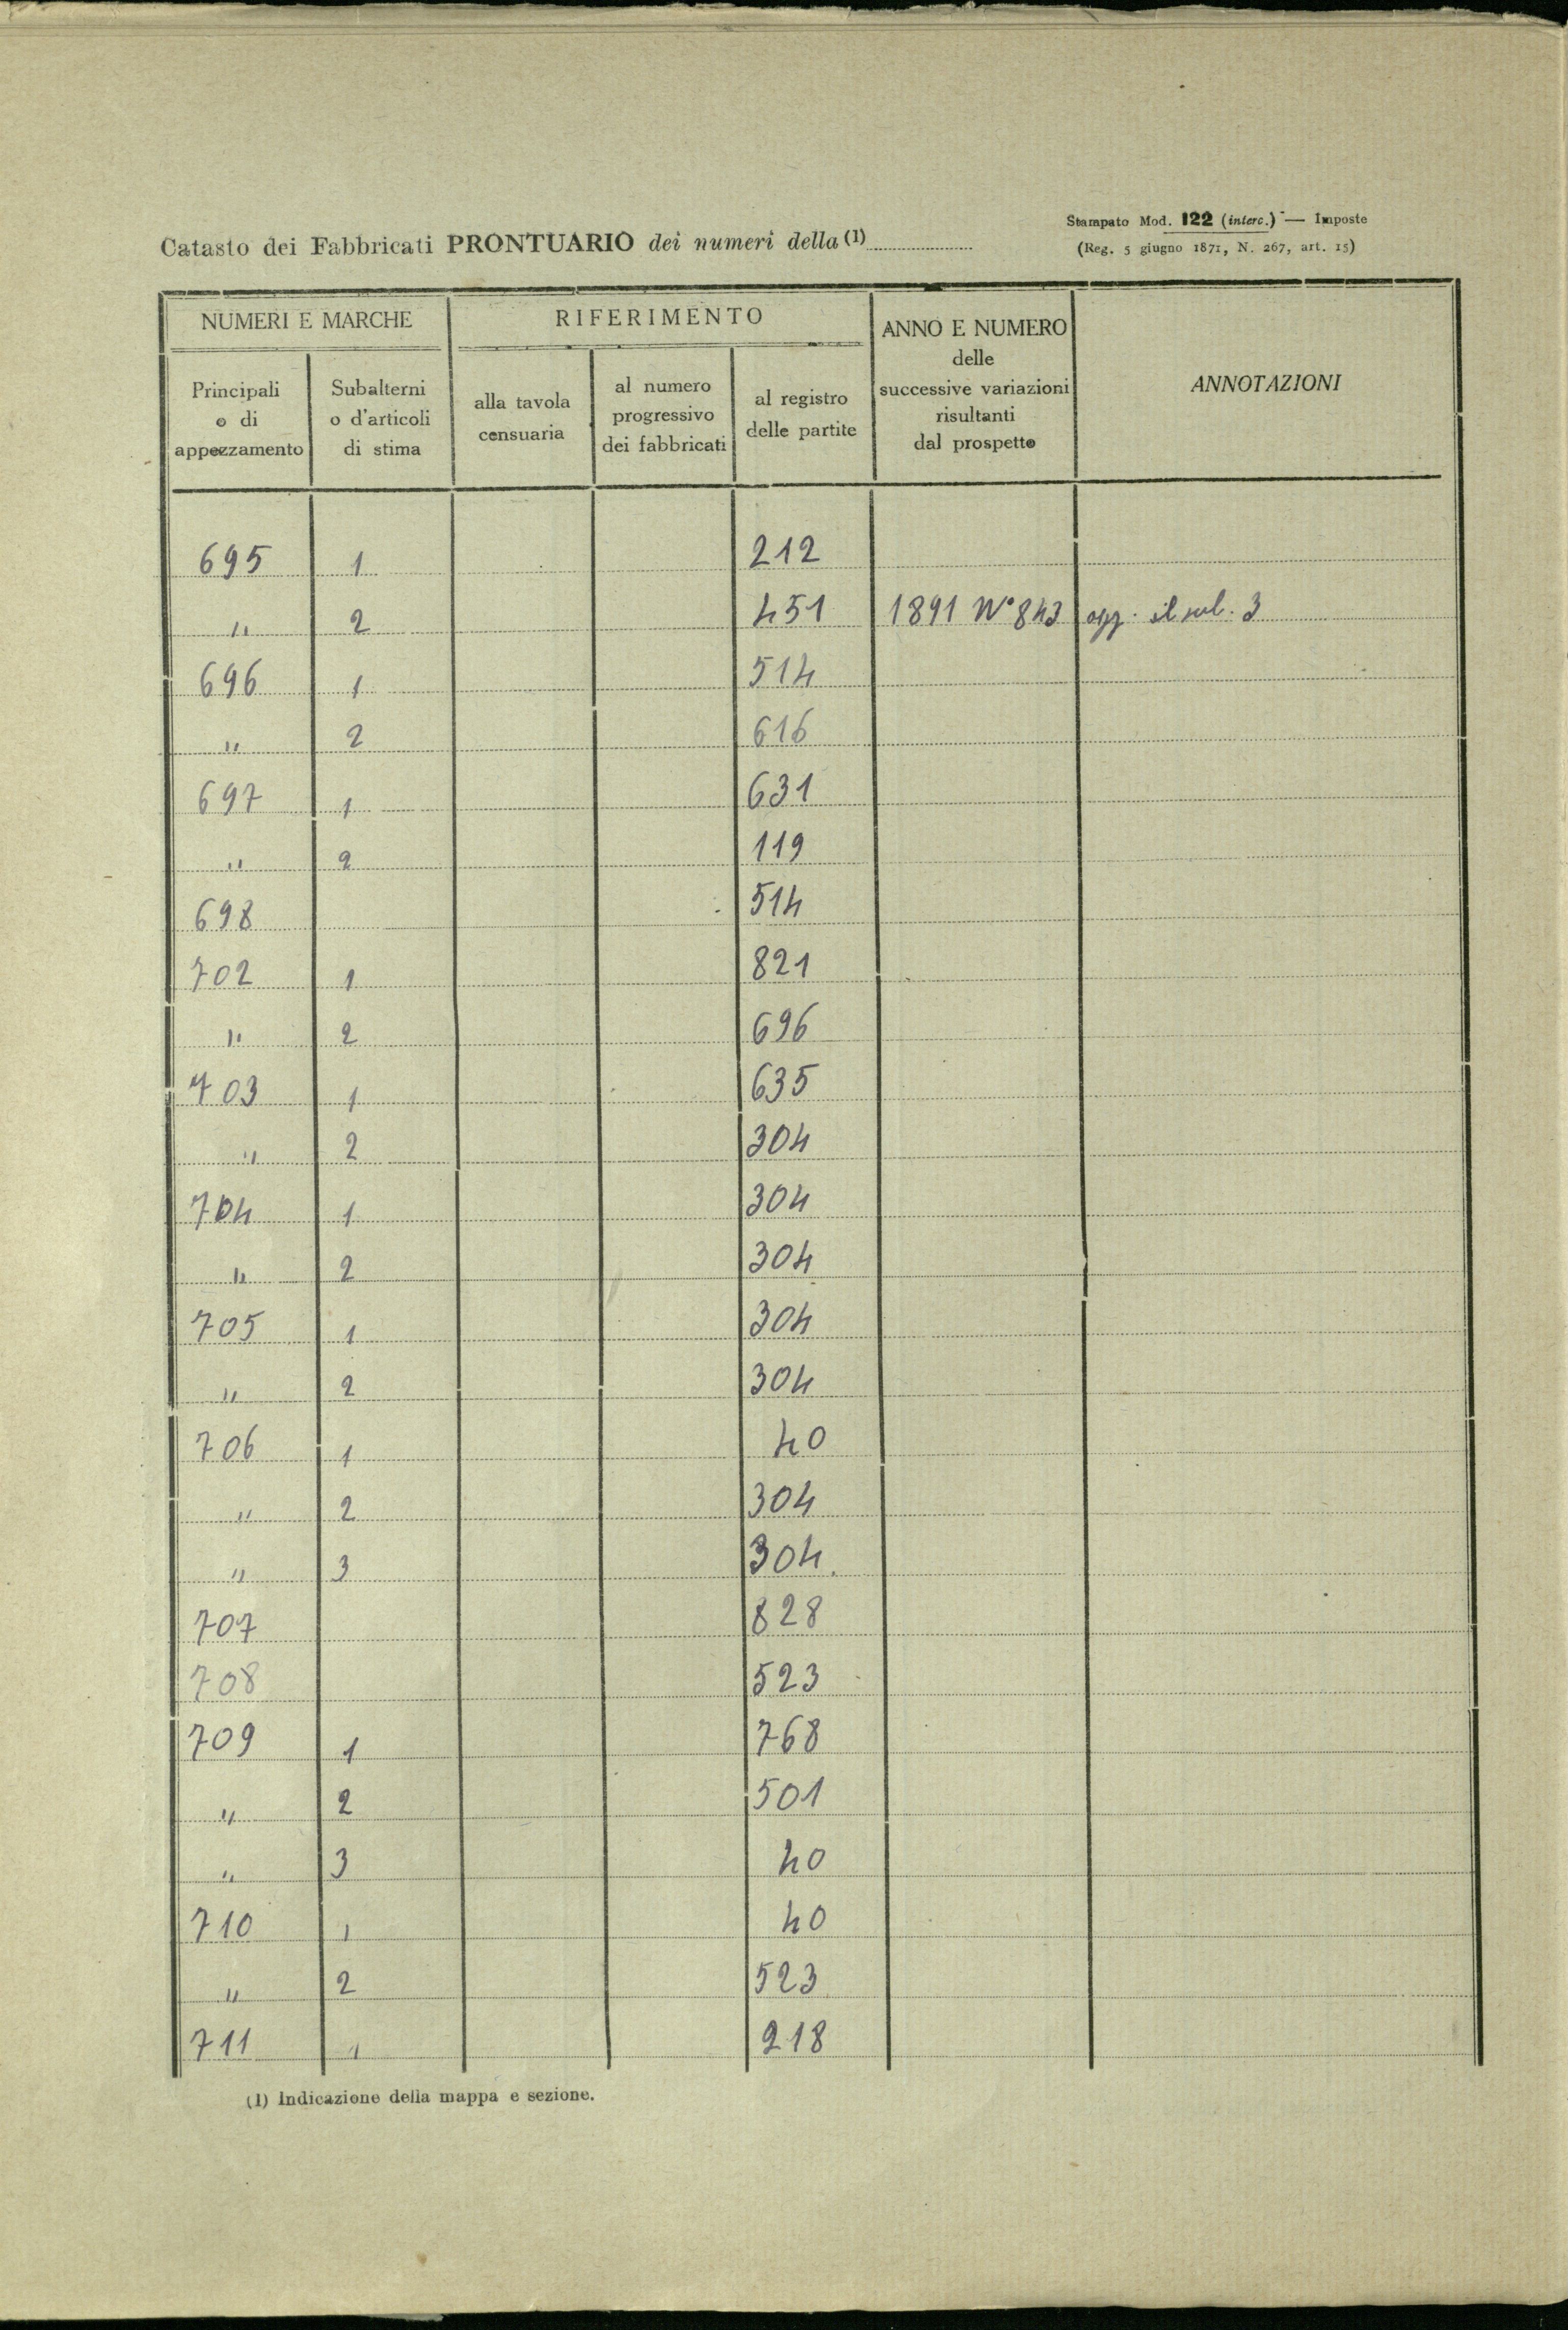 Stampato Mod. 122 (interc.) — Imposte
Catasto dei Fabbricati PRONTUARIO dei numeri della (1)
(Reg. 5 giugno 1871, N. 267, art. 15)
NUMERI E MARCHE
RIFERIMENTO
ANNO E NUMERO
delle
successive variazioni
risultanti
dal prospetto
ANNOTAZIONI
Principali
o di
appezzamento
Subalterni
o d'articoli
di stima
alla tavola
censuaria
al numero
progressivo
dei fabbricati
al registro
delle partite
695 1 212
" 2 451 1891 N° 843 agg. il sub. 3
696 1 514
" 2 616
697 1 631
" 2 119
698 514
702 1 821
" 2 696
703 1 635
" 2 304
704 1 304
" 2 304
705 1 304
" 2 304
706 1 40
" 2 304
" 3 304.
707 828
708 523
709 1 768
" 2 501
" 3 40
710 1 40
" 2 523
711 1 218
(1) Indicazione della mappa e sezione.